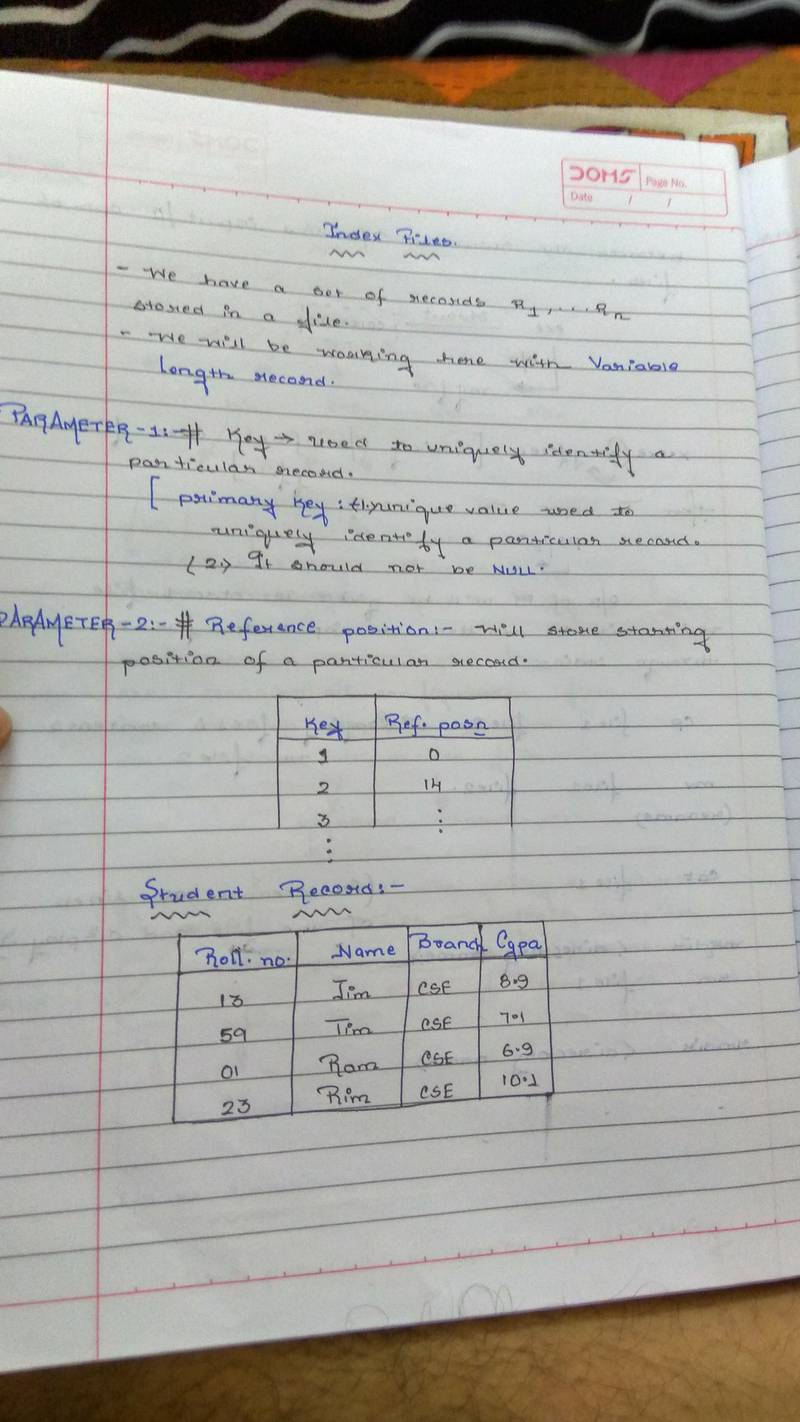 DOMS Page No.
Date / /
Index Files.
- We have a set of records R1,....Rn
stored in a file.
- We will be working here with Variable
length record.
PARAMETER-1:-# Key → used to uniquely identify a
particular record.
[ primary key: (1.) unique value used to
uniquely identify a particular record.
(2.) It should not be NULL.
PARAMETER-2:-# Reference position:- will store starting
position of a particular record.
Key Ref. posn
1 0
2 14
3 ⋮
⋮
Student Record:-
Roll. no. Name Branch Cgpa
13 Jim CSE 8.9
59 Tim CSE 7.1
01 Ram CSE 6.9
23 Rim CSE 10.1